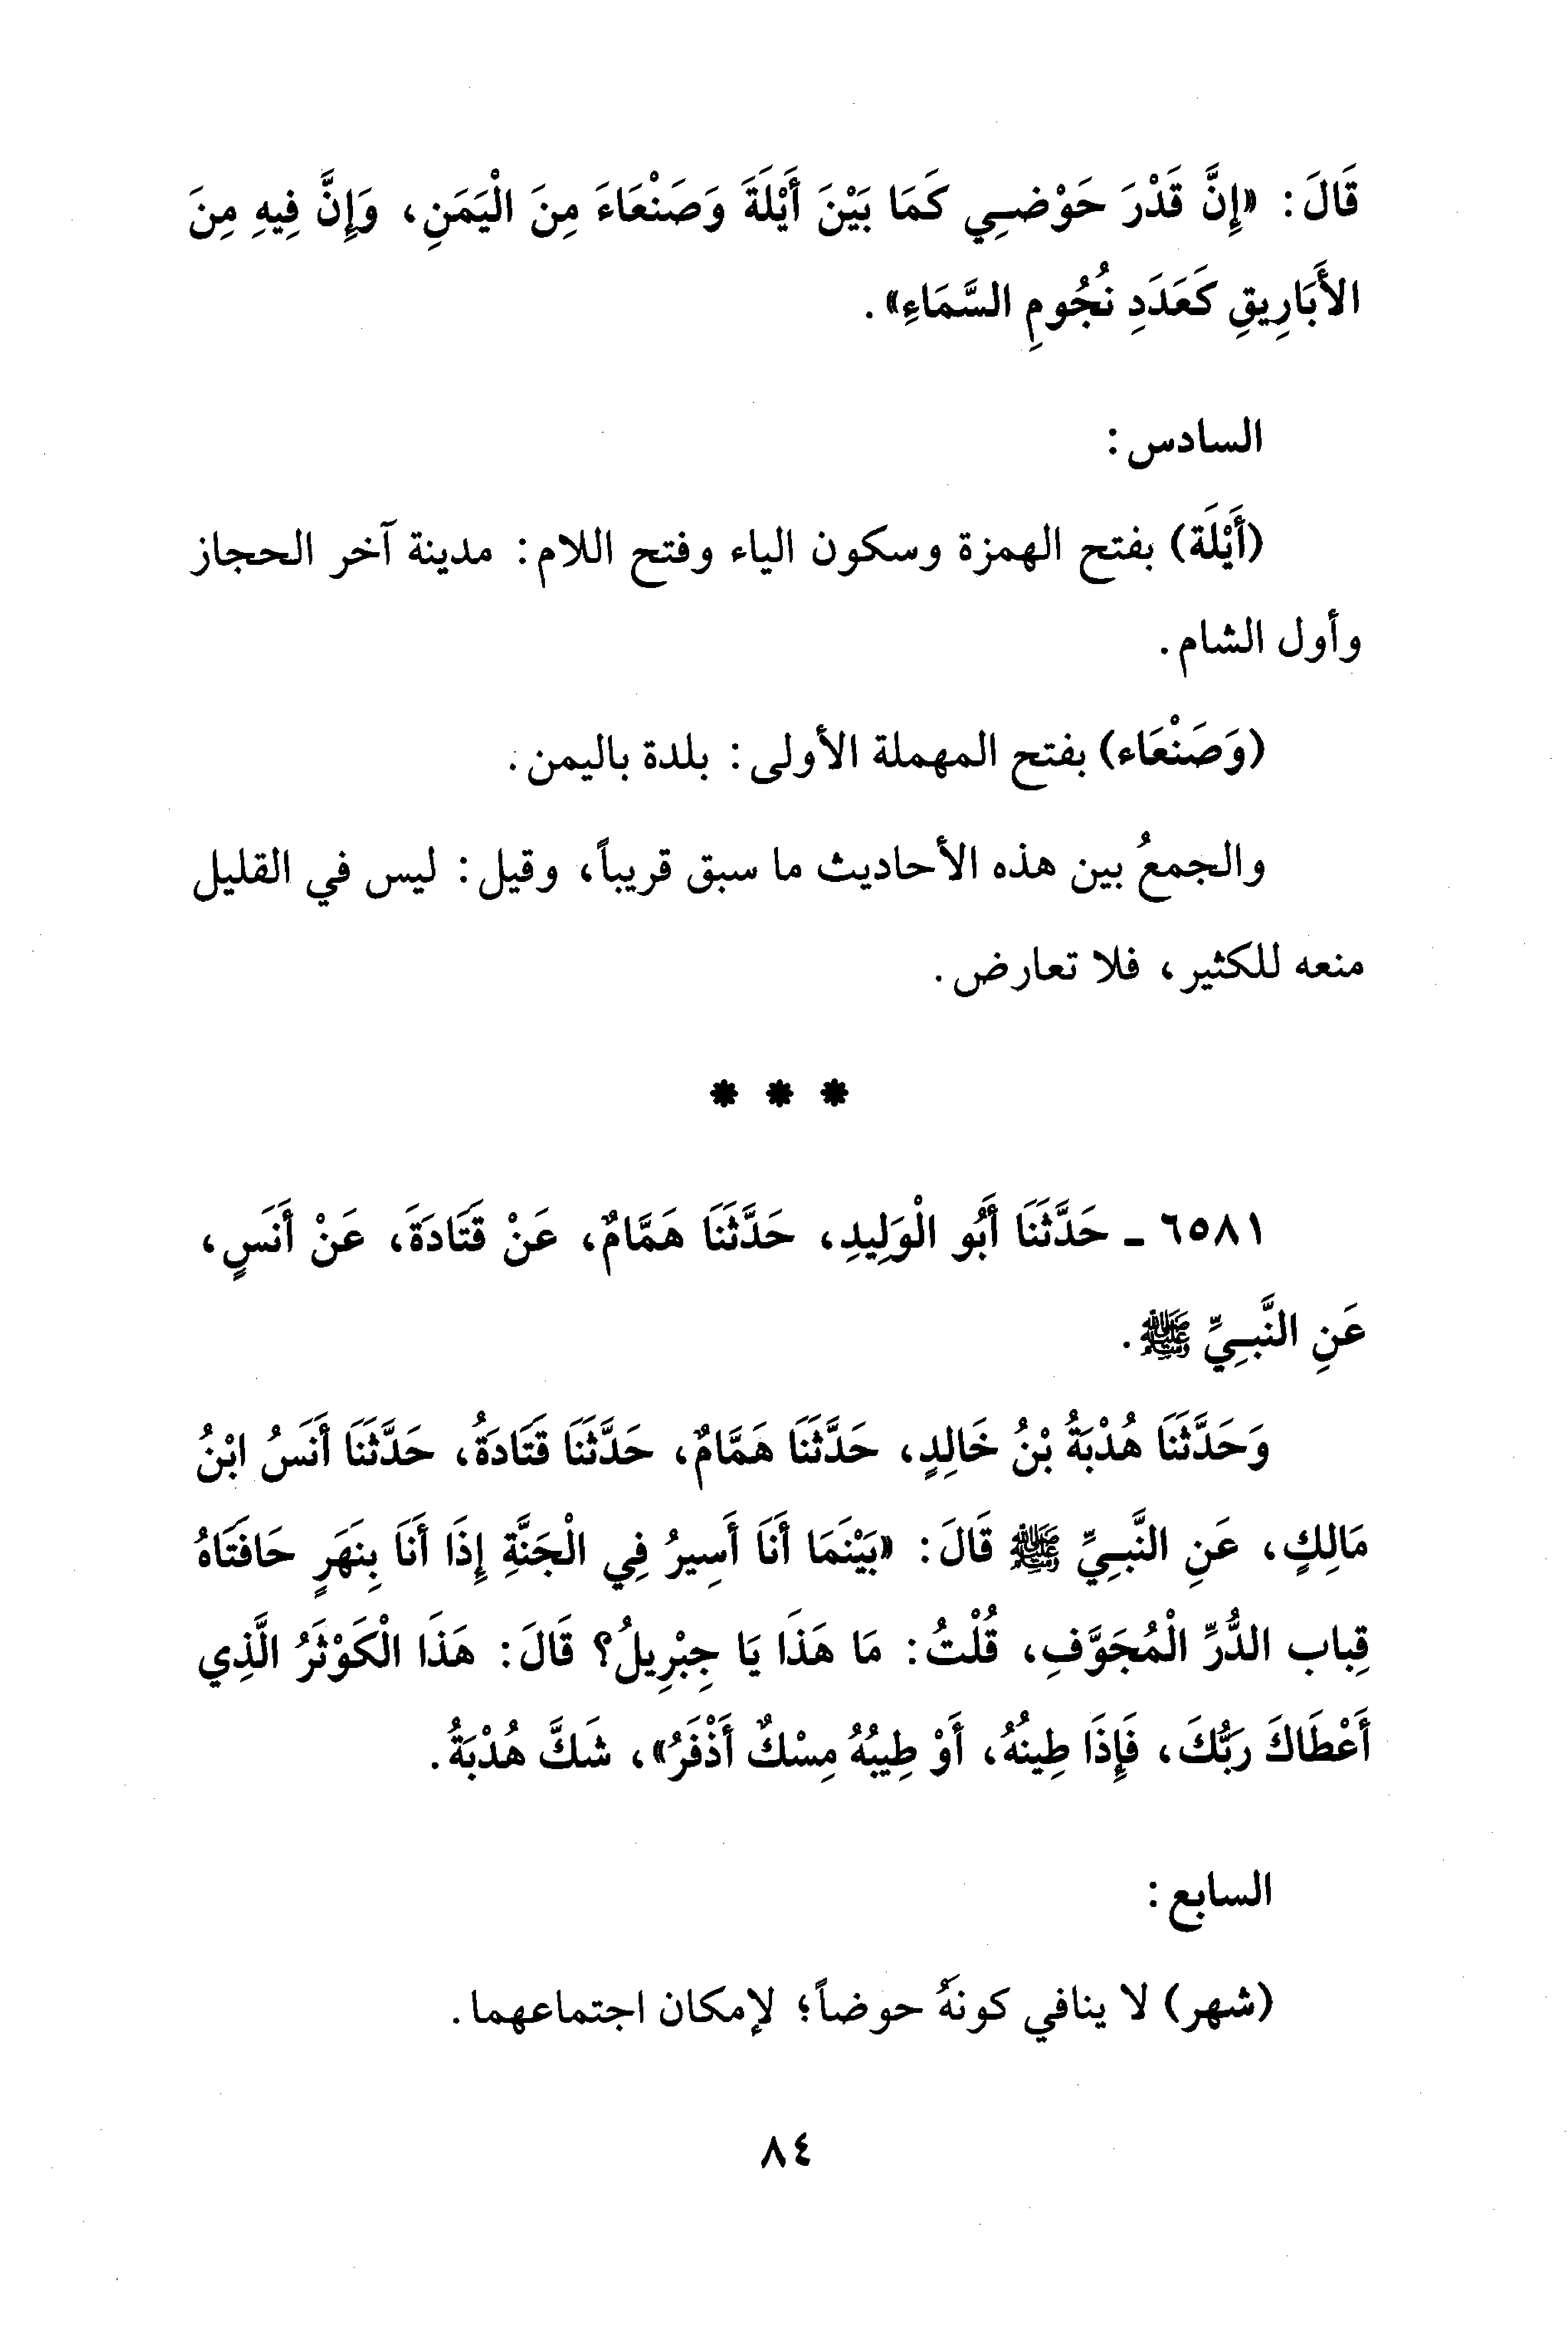 قَالَ: «إِنَّ قَدْرَ حَوْضِي كَمَا بَيْنَ أَيْلَةَ وَصَنْعَاءَ مِنَ الْيَمَنِ، وَإِنَّ فِيهِ مِنَ
الأَبَارِيقِ كَعَدَدِ نُجُومِ السَّمَاءِ».
السادس:
(أَيْلَة) بفتح الهمزة وسكون الياء وفتح اللام: مدينة آخر الحجاز
وأول الشام.
(وَصَنْعَاء) بفتح المهملة الأولى: بلدة باليمن.
والجمعُ بين هذه الأحاديث ما سبق قريباً، وقيل: ليس في القليل
منعه للكثير، فلا تعارض.
* * *
٦٥٨١ - حَدَّثَنَا أَبُو الْوَلِيدِ، حَدَّثَنَا هَمَّامٌ، عَنْ قَتَادَةَ، عَنْ أَنَسٍ،
عَنِ النَّبِيِّ ﷺ.
وَحَدَّثَنَا هُدْبَةُ بْنُ خَالِدٍ، حَدَّثَنَا هَمَّامٌ، حَدَّثَنَا قَتَادَةُ، حَدَّثَنَا أَنَسُ ابْنُ
مَالِكٍ، عَنِ النَّبِيِّ ﷺ قَالَ: «بَيْنَمَا أَنَا أَسِيرُ فِي الْجَنَّةِ إِذَا أَنَا بِنَهَرٍ حَافَتَاهُ
قِباب الدُّرِّ الْمُجَوَّفِ، قُلْتُ: مَا هَذَا يَا جِبْرِيلُ؟ قَالَ: هَذَا الْكَوْثَرُ الَّذِي
أَعْطَاكَ رَبُّكَ، فَإِذَا طِينُهُ، أَوْ طِيبُهُ مِسْكٌ أَذْفَرُ»، شَكَّ هُدْبَةُ.
السابع:
(شهر) لا ينافي كونهُ حوضاً؛ لإمكان اجتماعهما.
٨٤